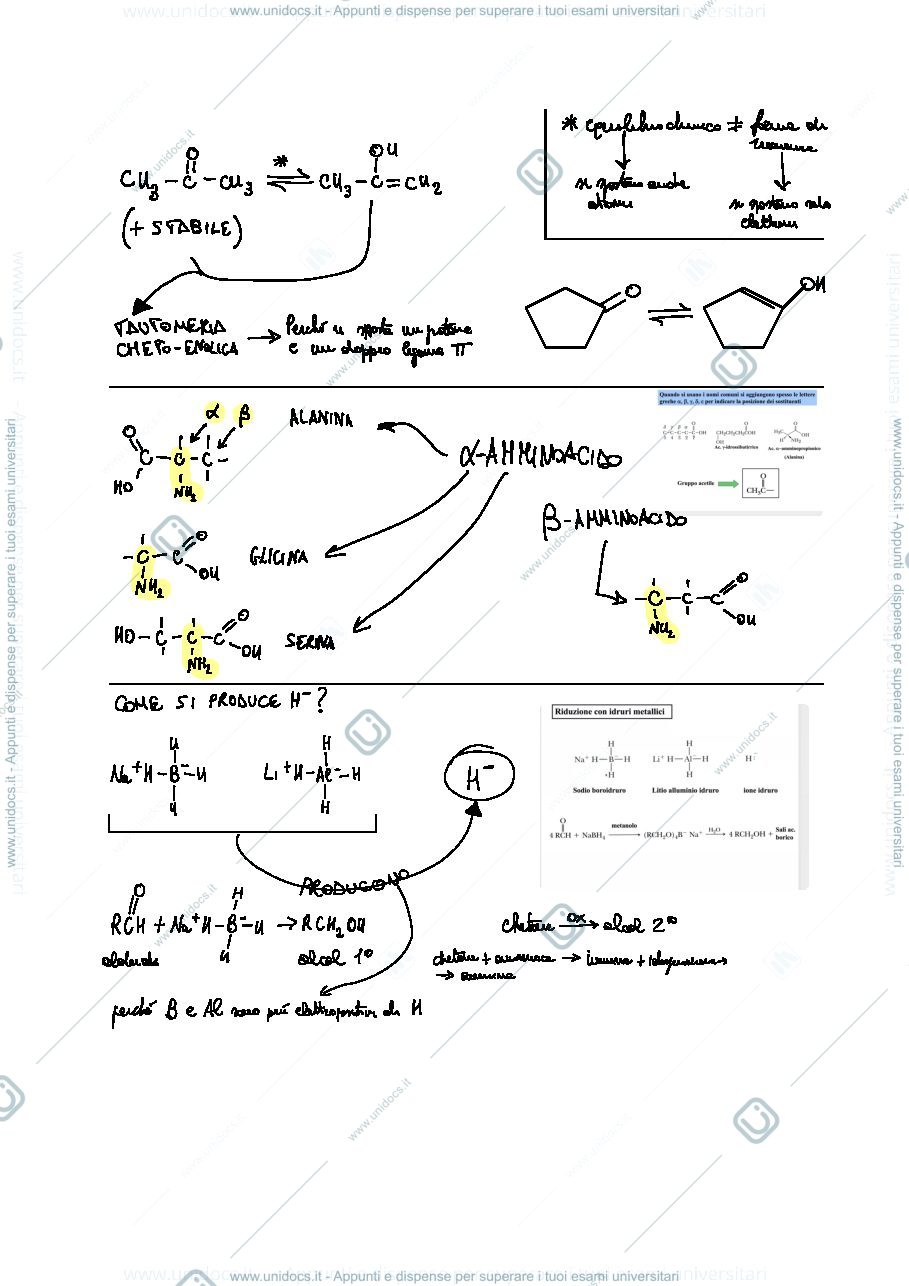 www.unidocs.it - Appunti e dispense per superare i tuoi esami universitari
* equilibrio chimico ≠ forme di risonanza
si spostano anche atomi
si spostano solo elettroni
O
CH3-C-CH3 ⇌ CH3-C=CH2
*
OH
(+ STABILE)
TAUTOMERIA
CHETO-ENOLICA
→ Perché si sposta un protone
e un doppio legame π
O ⇌ OH
Quando si usano i nomi comuni si aggiungono spesso le lettere
greche α, β, γ, δ, ε per indicare la posizione dei sostituenti
Ac. γ-idrossibutirrico
Ac. α-amminopropionico
(Alanina)
Gruppo acetile
CH3C-
α β
ALANINA
O
C-C-C-
HO
NH2
α-AMMINOACIDO
β-AMMINOACIDO
-C-C
O
OH
NH2
GLICINA
-C-C-C
O
OH
NH2
HO-C-C-C
O
OH
NH2
SERINA
COME SI PRODUCE H⁻?
Riduzione con idruri metallici
H
Na⁺ H-B⁻-H
H
Li⁺ H-Al⁻-H
H
H⁻
Sodio boroidruro
Litio alluminio idruro
ione idruro
4 RCH + NaBH4 metanolo → (RCH2O)4B⁻ Na⁺ H2O → 4 RCH2OH + Sali ac. borico
Na⁺H-B⁻-H
Li⁺H-Al⁻-H
H⁻
PRODUCONO
RCH + Na⁺H-B⁻-H → RCH2OH
aldeide
alcol 1º
chetone OX → alcol 2º
chetone + ammoniaca → immina + idrogenazione →
→ ammina
perché B e Al sono più elettropositivi di H
www.unidocs.it - Appunti e dispense per superare i tuoi esami universitari